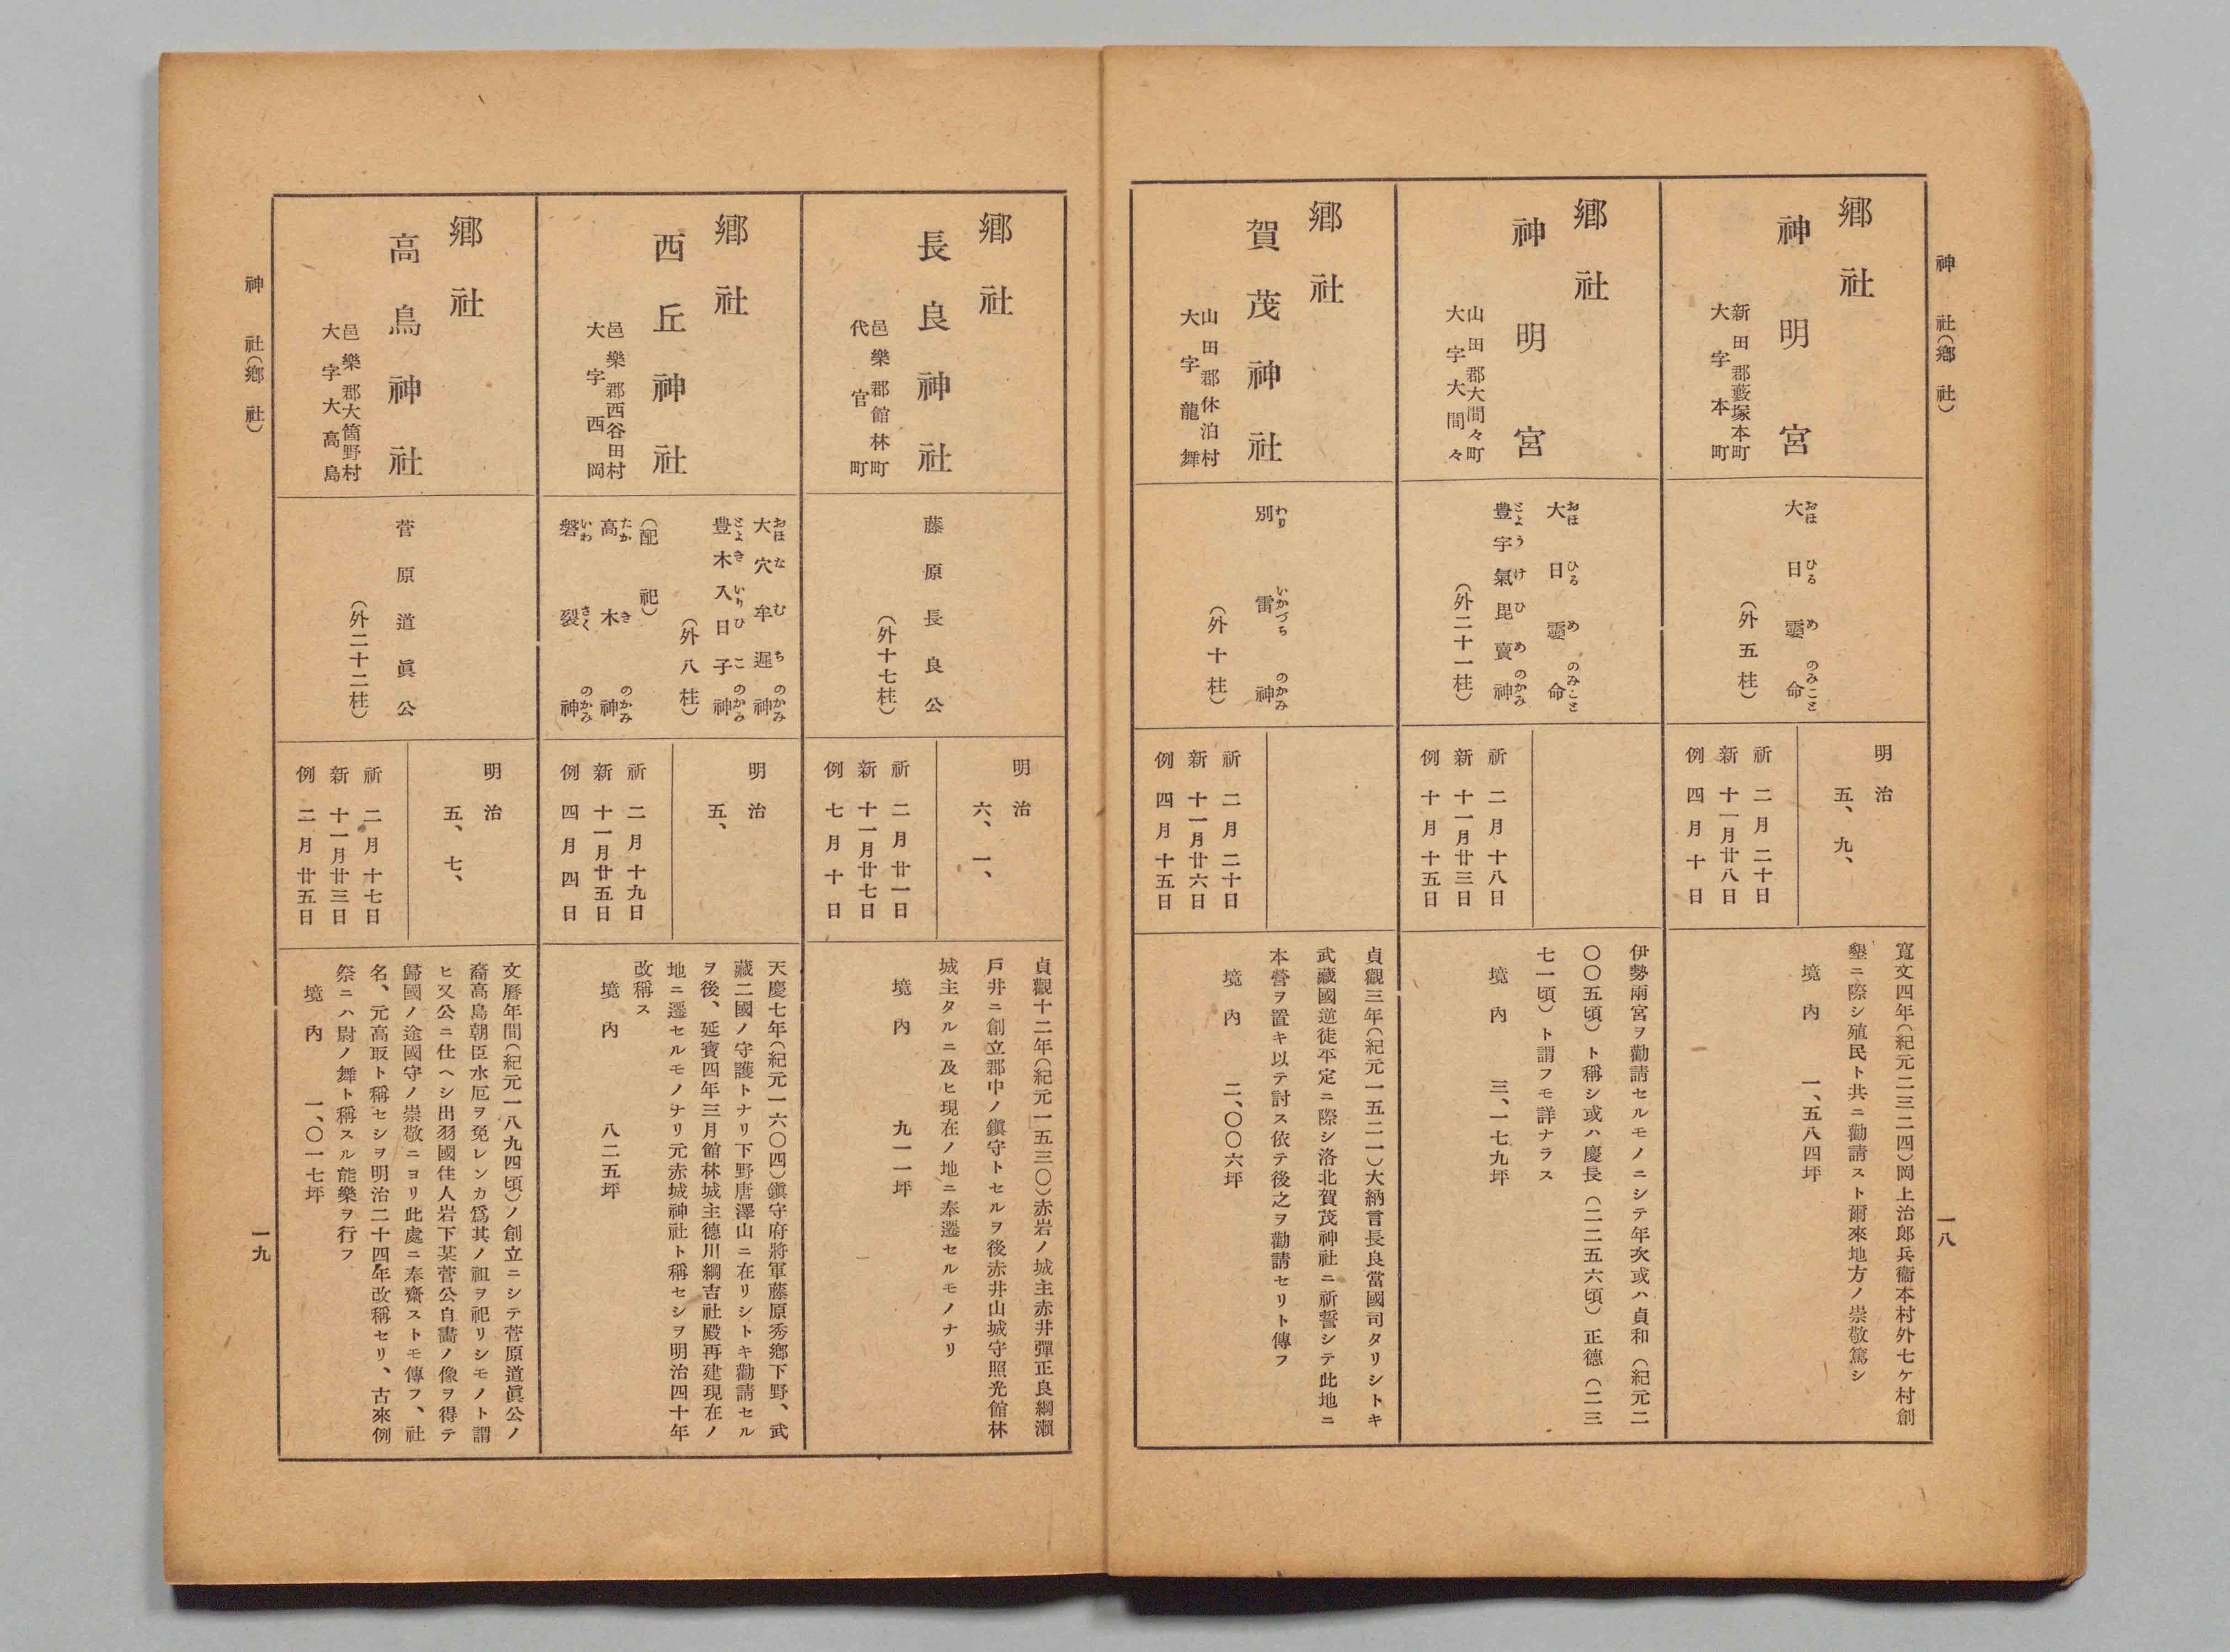 神社(鄕社)
一八
鄕社
神明宮
新田郡藪塚本町
大字本町
大日孁命
おほひるめのみこと
(外五柱)
明治
五、九、
祈 二月二十日
新 十一月廿八日
例 四月十日
寬文四年(紀元二三二四)岡上治郎兵衞本村外七ケ村創
墾ニ際シ殖民ト共ニ勸請スト爾來地方ノ崇敬篤シ
境內 一、五八四坪
鄕社
神明宮
山田郡大間々町
大字大間々
大日孁命
おほひるめのみこと
豊宇氣毘賣神
とようけひめのかみ
(外二十一柱)
祈 二月十八日
新 十一月廿三日
例 十月十五日
伊勢兩宮ヲ勸請セルモノニシテ年次或ハ貞和(紀元二
〇〇五頃)ト稱シ或ハ慶長(二二五六頃)正德(二三
七一頃)ト謂フモ詳ナラス
境內 三、一七九坪
鄕社
賀茂神社
山田郡休泊村
大字龍舞
別雷神
わりいかづちのかみ
(外十柱)
祈 二月二十日
新 十一月廿六日
例 四月十五日
貞觀三年(紀元一五二一)大納言長良當國司タリシトキ
武藏國逆徒平定ニ際シ洛北賀茂神社ニ祈誓シテ此地ニ
本營ヲ置キ以テ討ス依テ後之ヲ勸請セリト傳フ
境內 二、〇〇六坪
鄕社
長良神社
邑樂郡館林町
代官町
藤原長良公
(外十七柱)
明治
六、一、
祈 二月廿一日
新 十一月廿七日
例 七月十日
貞觀十二年(紀元一五三〇)赤岩ノ城主赤井彈正良綱瀨
戶井ニ創立郡中ノ鎭守トセルヲ後赤井山城守照光館林
城主タルニ及ヒ現在ノ地ニ奉遷セルモノナリ
境內 九一一坪
鄕社
西丘神社
邑樂郡西谷田村
大字西岡
大穴牟遲神
おほなむちのかみ
豊木入日子神
とよきいりひこのかみ
(外八柱)
(配祀)
高木神
たかきのかみ
磐裂神
いわさくのかみ
明治
五、
祈 二月十九日
新 十一月廿五日
例 四月四日
天慶七年(紀元一六〇四)鎭守府將軍藤原秀鄕下野、武
藏二國ノ守護トナリ下野唐澤山ニ在リシトキ勸請セル
ヲ後、延寶四年三月館林城主德川綱吉社殿再建現在ノ
地ニ遷セルモノナリ元赤城神社ト稱セシヲ明治四十年
改稱ス
境內 八二五坪
鄕社
高鳥神社
邑樂郡大箇野村
大字大高島
菅原道眞公
(外二十二柱)
明治
五、七、
祈 二月十七日
新 十一月廿三日
例 二月廿五日
文曆年間(紀元一八九四頃)ノ創立ニシテ菅原道眞公ノ
裔高島朝臣水厄ヲ免レンカ爲其ノ祖ヲ祀リシモノト謂
ヒ又公ニ仕ヘシ出羽國住人岩下某菅公自畵ノ像ヲ得テ
歸國ノ途國守ノ崇敬ニヨリ此處ニ奉齋ストモ傳フ、社
名、元高取ト稱セシヲ明治二十四年改稱セリ、古來例
祭ニハ尉ノ舞ト稱スル能樂ヲ行フ
境內 一、〇一七坪
神社(鄕社)
一九